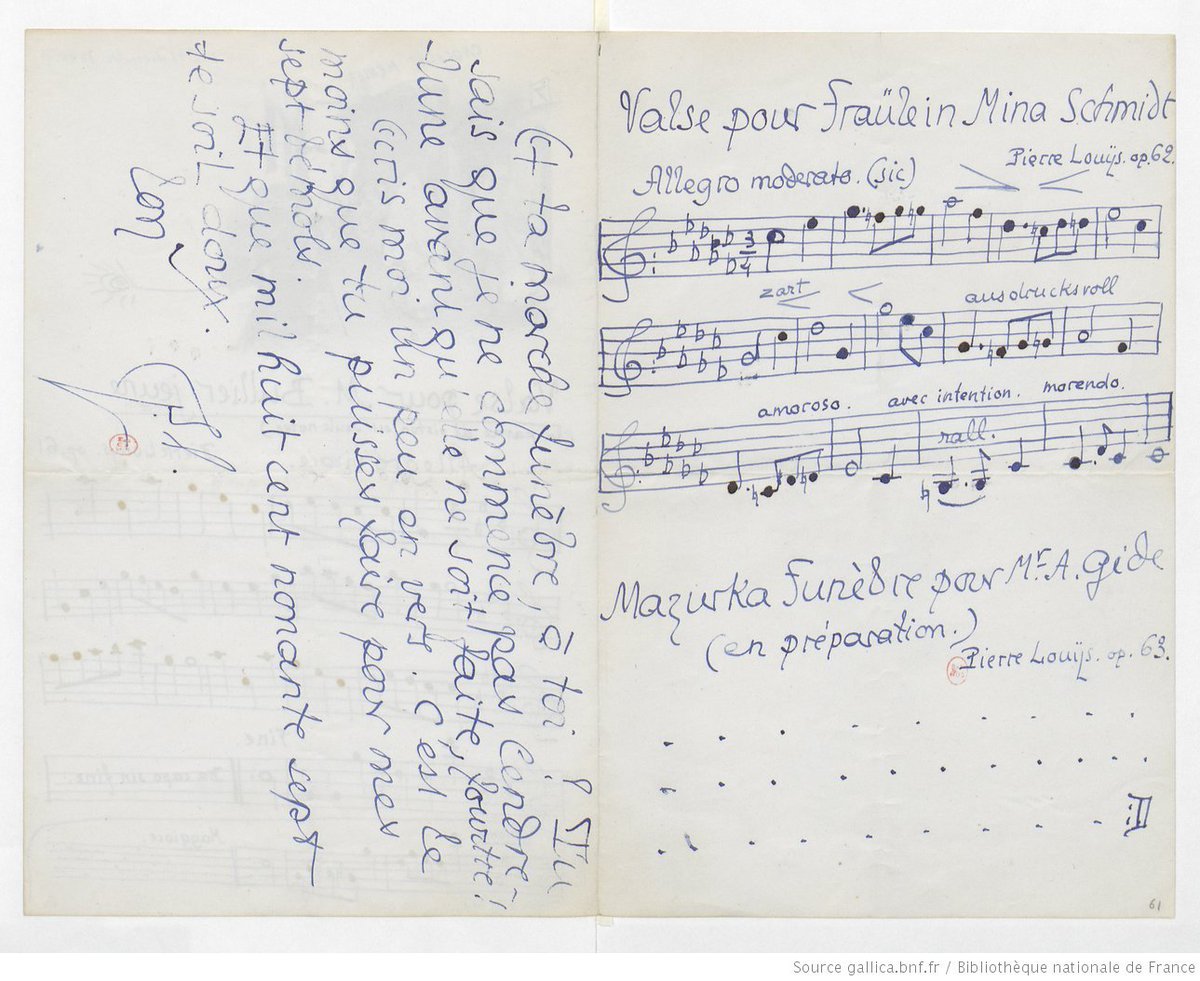 Et ta marche funèbre, à toi ! Tu
sais que je ne commence pas Cendre-
-lune avant qu'elle ne soit faite, foutre !
Ecris moi un peu en vers. C'est le
moins que tu puisses faire pour mes
sept bémols.
Et que mil huit cent nonante sept
te soit doux.
Ton
P.L.
Valse pour Fraülein Mina Schmidt
Pierre Louÿs. op. 62.
Allegro moderato. (sic)
3/4
zart
ausdrucksvoll
amoroso. avec intention. morendo.
rall.
Mazurka Funèbre pour Mr. A. Gide
(en préparation.)
Pierre Louÿs. op. 63.
61
Source gallica.bnf.fr / Bibliothèque nationale de France